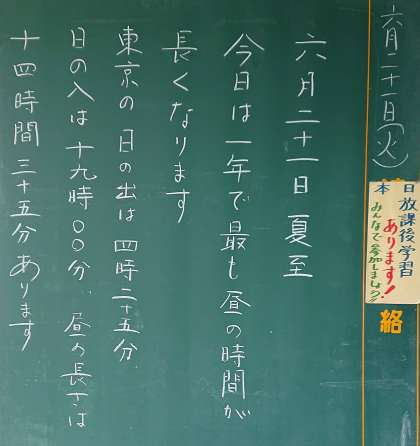 六月二十一日(火)
本日放課後学習
あります!
みんなで参加しましょう!!
絡
六月二十一日 夏至
今日は一年で最も昼の時間が
長くなります
東京の日の出は四時二十五分
日の入は十九時〇〇分、昼の長さは
十四時間三十五分あります